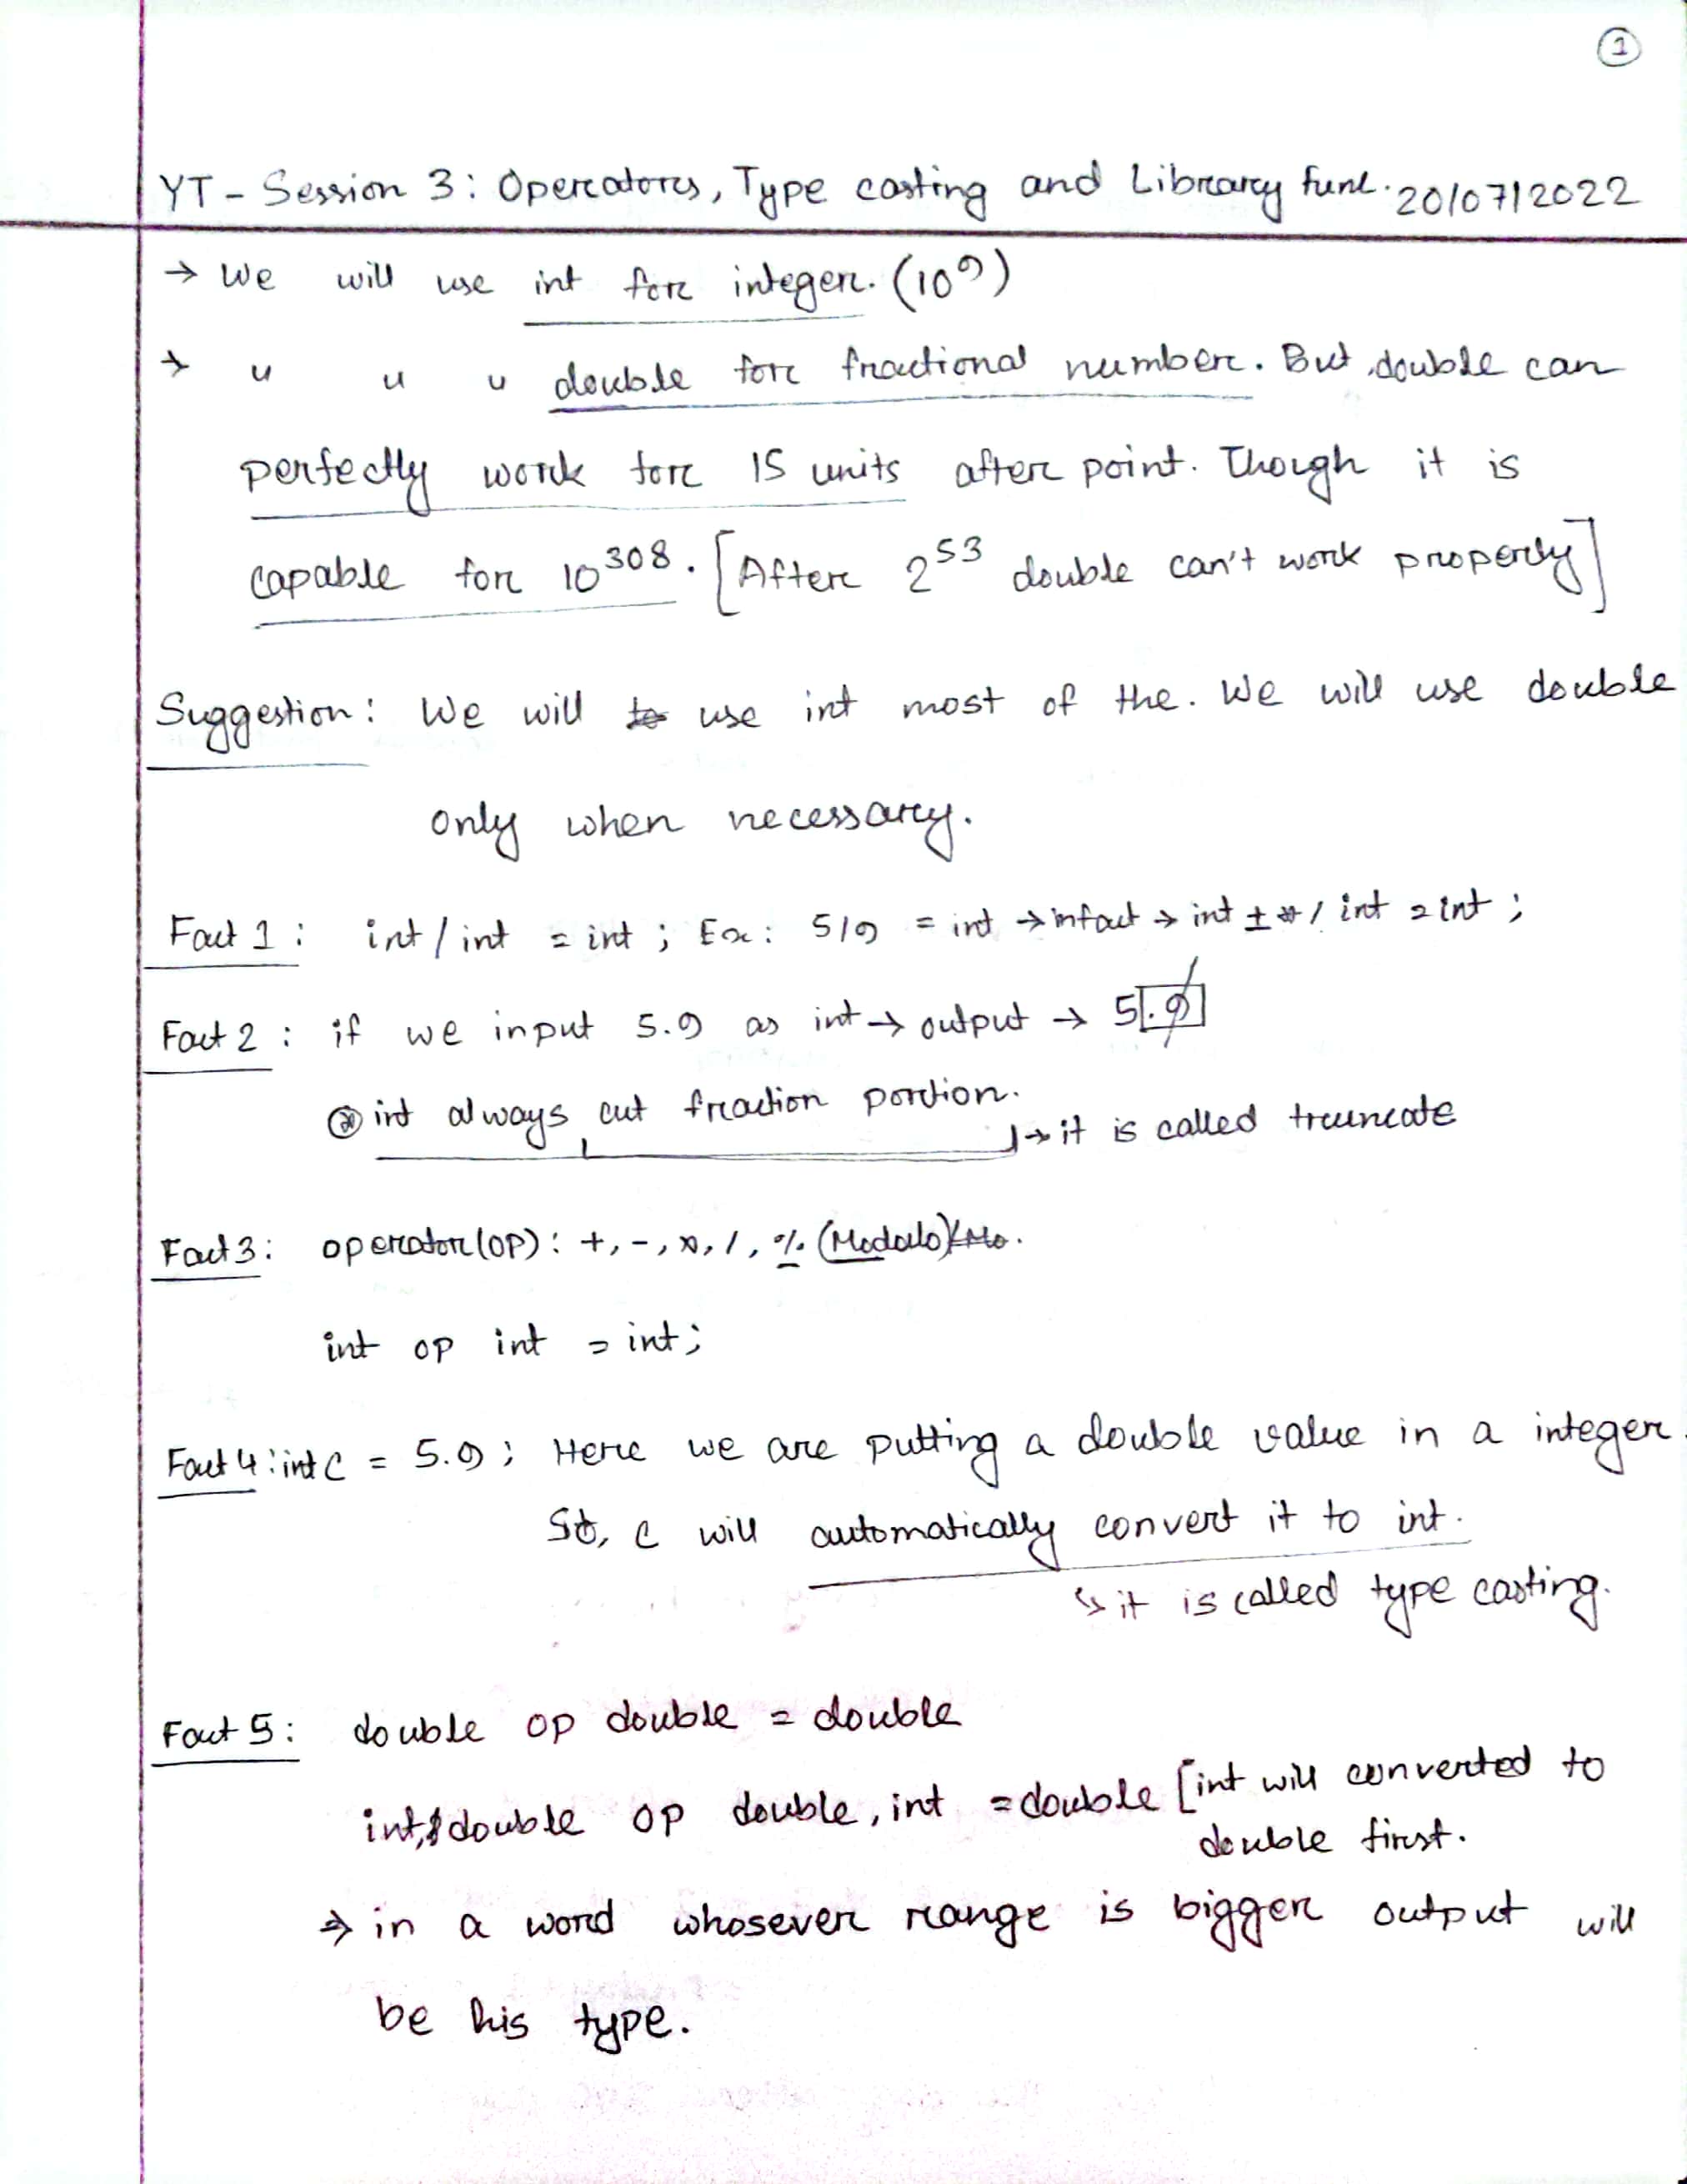 1
YT - Session 3: Operators, Type casting and Library func. 20/07/2022
→ We will use int for integer. (10⁹)
→ " " " double for fractional number. But double can
perfectly work for 15 units after point. Though it is
capable for 10³⁰⁸. [After 2⁵³ double can't work properly]
Suggestion: We will use int most of the. We will use double
only when necessary.
Fact 1: int / int = int ; Ex: 5/9 = int → infact → int ± * / int = int ;
Fact 2: if we input 5.9 as int → output → 5.9
⊛ int always cut fraction portion.
→ it is called truncate
Fact 3: operator (OP) : +, -, *, /, % (Modulo).
int op int = int;
Fact 4: int C = 5.9 ; Here we are putting a double value in a integer.
So, C will automatically convert it to int.
↳ it is called type casting.
Fact 5: double op double = double
int, double op double, int = double [int will converted to
double first.
⇒ in a word whosever range is bigger output will
be his type.